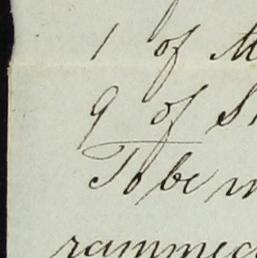 1 of M
9 of S
To be m
rammed